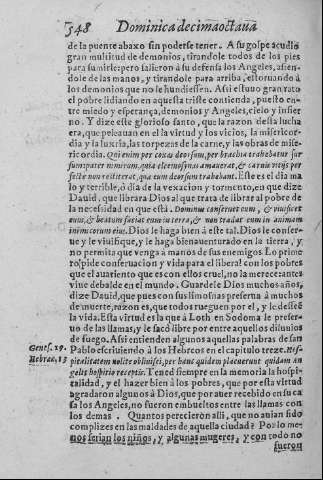 548 Dominica decimaoctaua
de la puente abaxo sin poderse tener. A su golpe acudio
gran multitud de demonios, tirandole todos de los pies
para sumirle: pero salieron à su defensa los Angeles, asien-
dole de las manos, y tirandole para arriba, estoruando à
los demonios que no le hundiessen. Assi estuuo gran rato
el pobre lidiando en aquesta triste contienda, puesto en-
tre miedo y esperança, demonios y Angeles, cielo y infier
no. Y dize este glorioso santo, que la razon desta lucha
era, que peleauan en el la virtud y los vicios, la misericor-
dia y la luxuria, las torpezas de la carne, y las obras de mise-
ricordia. Qui enim per coxas deorsum, per brachia trahebatur sur
sum: patet nimirum, quia eleemosynas amauerat, & carnis vitijs per
fecte non restiterat, quæ eum deorsum trahebant. Este es el dia ma
lo y terrible, ò dia de la vexacion y tormento, en que dize
Dauid, que librara Dios al que trata de librar al pobre de
la necessidad en que està. Dominus conseruet eum, & viuificet
eum, & beatum faciat eum in terra, & non tradat eum in animam
inimicorum eius. Dios le haga bien à este tal. Dios le conser-
ue y le viuifique, y le haga bienauenturado en la tierra, y
no permita que venga à manos de sus enemigos. Lo prime
ro pide conseruacion y vida para el liberal con los pobres
que el auariento que es con ellos cruel, no la merece: antes
viue debalde en el mundo. Guardele Dios muchos años,
dize Dauid, que pues con sus limosnas preserua à muchos
de muerte: razon es, que todos rueguen por el, y le desseē
la vida. Esta virtud es la que à Loth en Sodoma le preser-
uo de las llamas, y le sacò libre por entre aquellos diluuios
de fuego. Assi entienden algunos aquellas palabras de san
Genes. 19. Pablo escriuiendo à los Hebreos en el capitulo treze. Hos-
Hebræ. 13 pitalitatem nolite obliuisci, per hanc quidam placuerunt quidam an
gelis hospitio receptis. Tened siempre en la memoria la hospi-
talidad, y el hazer bien à los pobres, que por esta virtud
agradaron algunos à Dios, que por auer recebido en su ca
sa los Angeles, no fueron embueltos entre las llamas con
los demas. Quantos perecieron alli, que no auian sido
complizes en las maldades de aquella ciudad? Por lo me-
nos serian los niños, y algunas mugeres, y con todo no
fueron